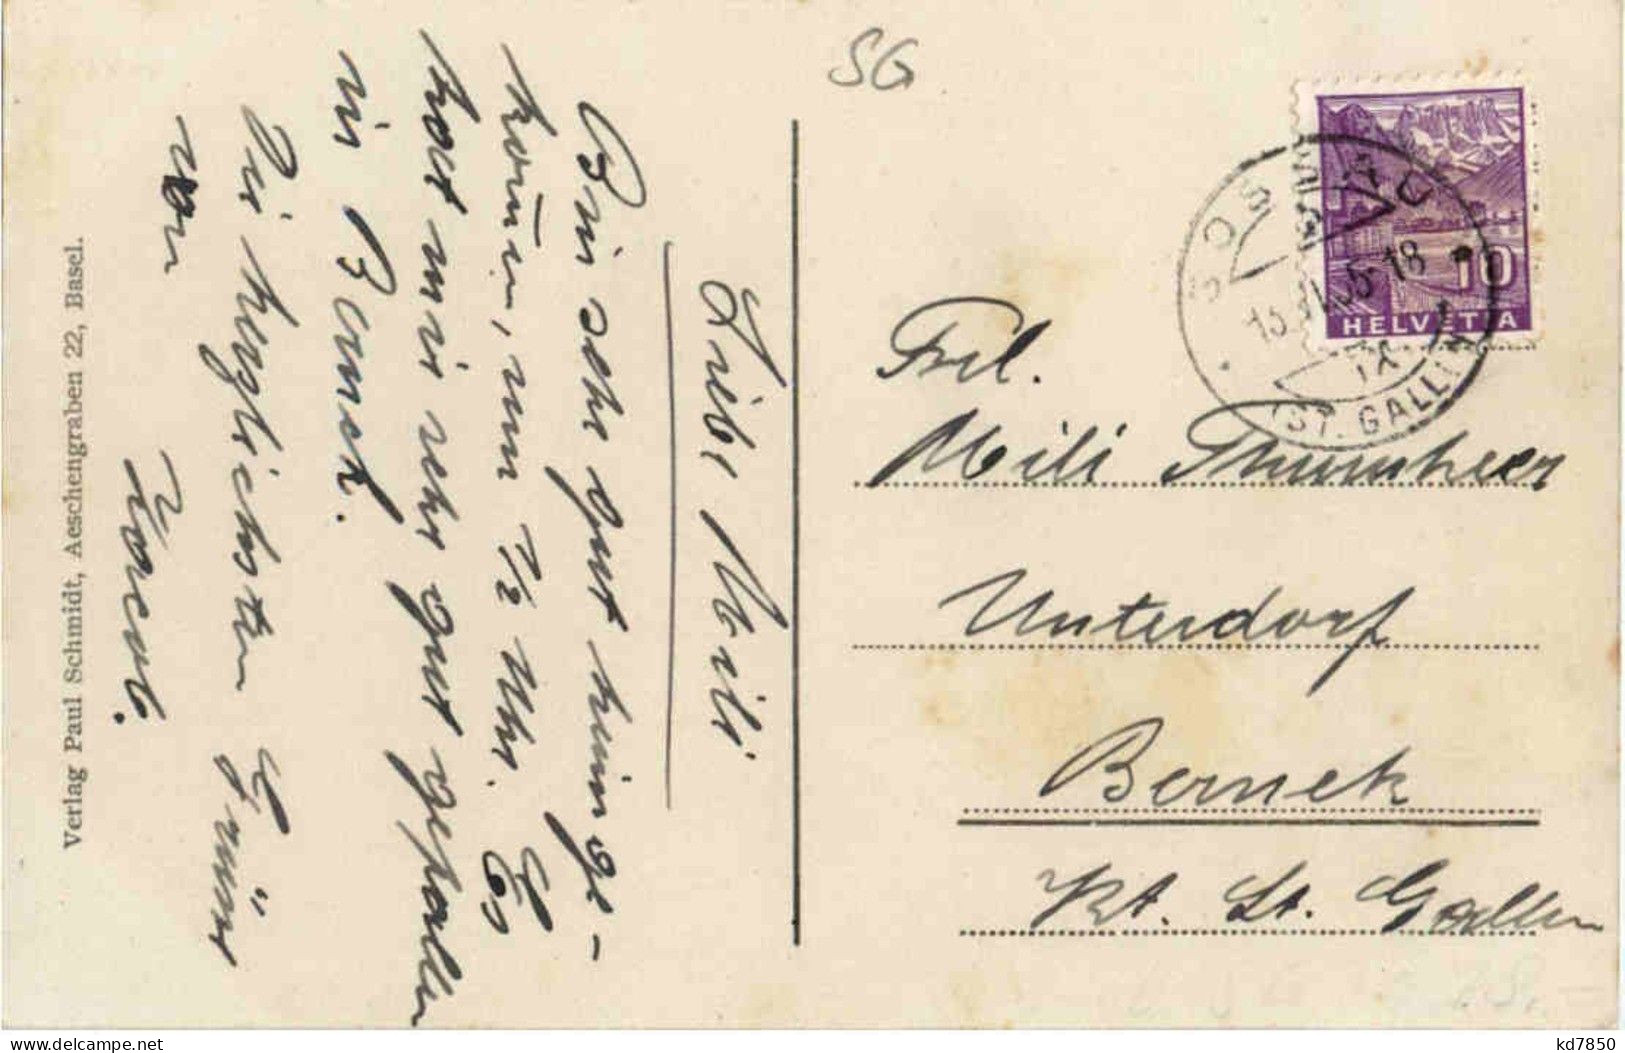 SG
HELVETIA
10
GOSSAU
ST. GALLEN
Frl.
Meili Thurnheer
Unterdorf
Berneck
Kt. St. Gallen
Liebe Meili
Bin sehr gut heimge-
kom̅en, um 7½ Uhr. Es
hat mir sehr gut gefallen
in Berneck.
Die herzlichsten Grüsse
von
Jacob.
Verlag Paul Schmidt, Aeschengraben 22, Basel.
kd7850